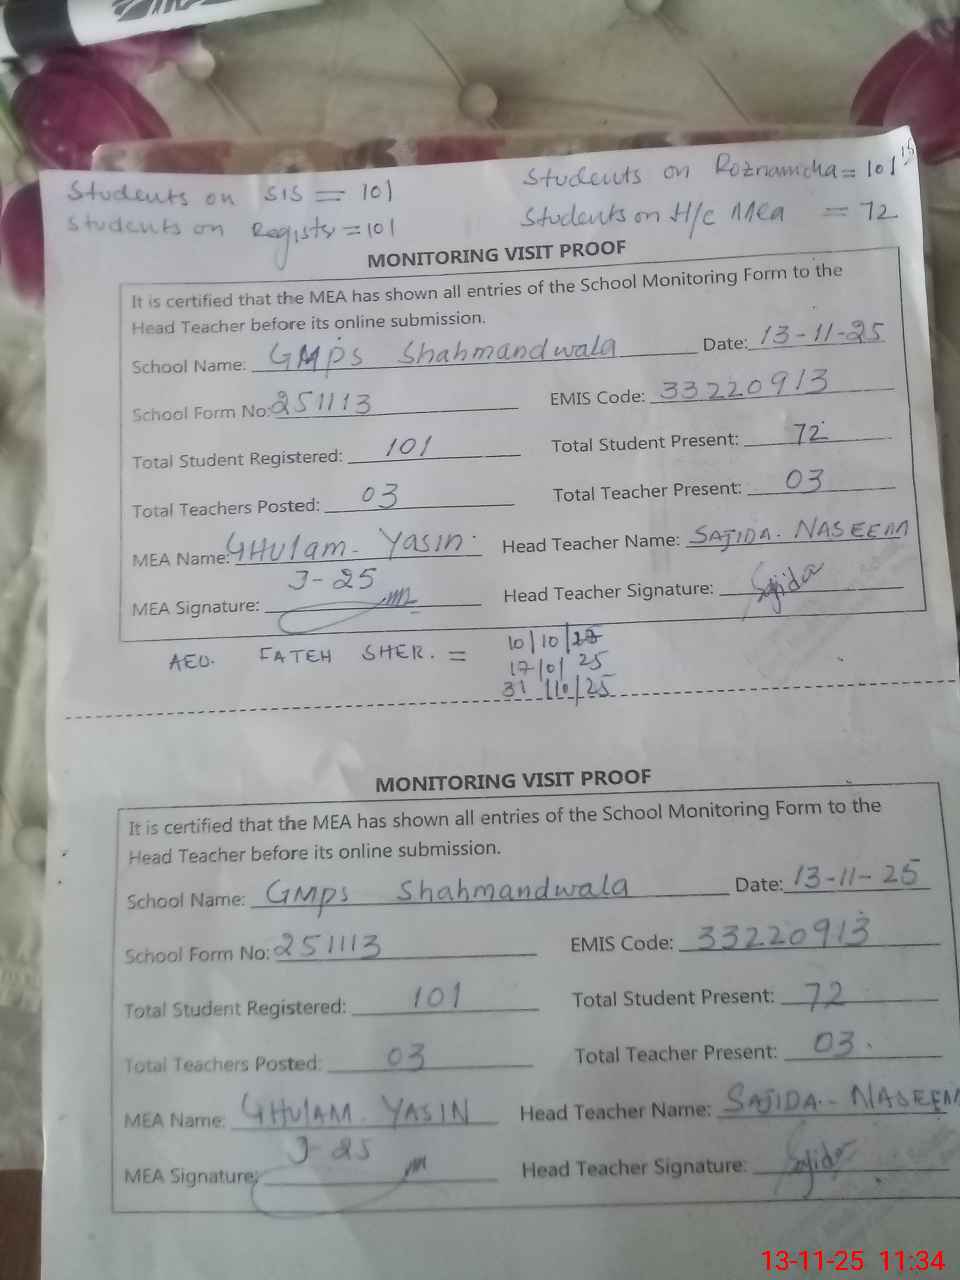 Students on SIS = 101
Students on Roznamcha = 101
Students on Registr = 101
Students on H/c Mea = 72
MONITORING VISIT PROOF
It is certified that the MEA has shown all entries of the School Monitoring Form to the
Head Teacher before its online submission.
School Name: GMPS Shahmandwala Date: 13-11-25
School Form No: 251113 EMIS Code: 33220913
Total Student Registered: 101 Total Student Present: 72
Total Teachers Posted: 03 Total Teacher Present: 03
MEA Name: GHULAM. YASIN. Head Teacher Name: SAJIDA. NASEEM
J-25
MEA Signature: Head Teacher Signature: Sajida
AEO. FATEH SHER. = 10/10/25
17/0/25
31/10/25
MONITORING VISIT PROOF
It is certified that the MEA has shown all entries of the School Monitoring Form to the
Head Teacher before its online submission.
School Name: GMPS Shahmandwala Date: 13-11-25
School Form No: 251113 EMIS Code: 33220913
Total Student Registered: 101 Total Student Present: 72
Total Teachers Posted: 03 Total Teacher Present: 03.
MEA Name: GHULAM. YASIN Head Teacher Name: SAJIDA. NASEEM
J-25
MEA Signature: Head Teacher Signature: Sajida
13-11-25 11:34